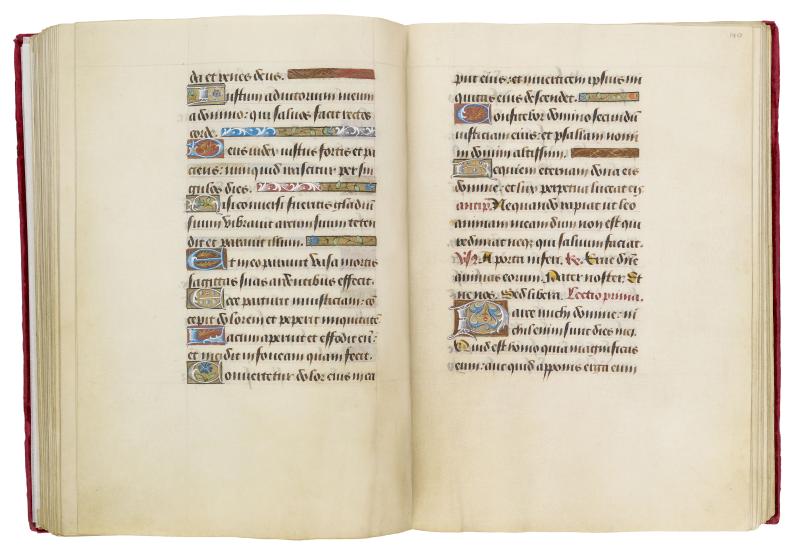 da et renes deus.
Iustum adiutorium meum
a domino: qui saluos facit rectos
corde.
Deus iudex iustus fortis et pa
ciens: numquid irascitur per sin
gulos dies.
Nisi conuersi fueritis gladiū
suum vibrauit arcum suum teten
dit et parauit illum.
Et in eo parauit vasa mortis
sagittas suas ardentibus effecit.
Ecce parturit iniusticiam: cō
cepit dolorem et peperit iniquitatē
Lacum aperuit et effodit eū:
et incidit in foueam quam fecit.
Conuertetur dolor eius in ca
140
put eius: et in verticem ipsius ini
quitas eius descendet.
Confitebor domino secundū
iusticiam eius: et psallam nomi
ni domini altissimi.
Requiem eternam dona eis
domine: et lux perpetua luceat eis
antip. Nequando rapiat ut leo
animam meam dum non est qui
redimat neq; qui saluum faciat.
A porta inferi. Erue dn̄e
animas eorum. Pater noster. Et
ne nos. Sed libera. Lectio prima.
Parce michi domine: ni
chil enim sunt dies mei.
Quid est homo quia magnificas
eum: aut quid apponis erga eum